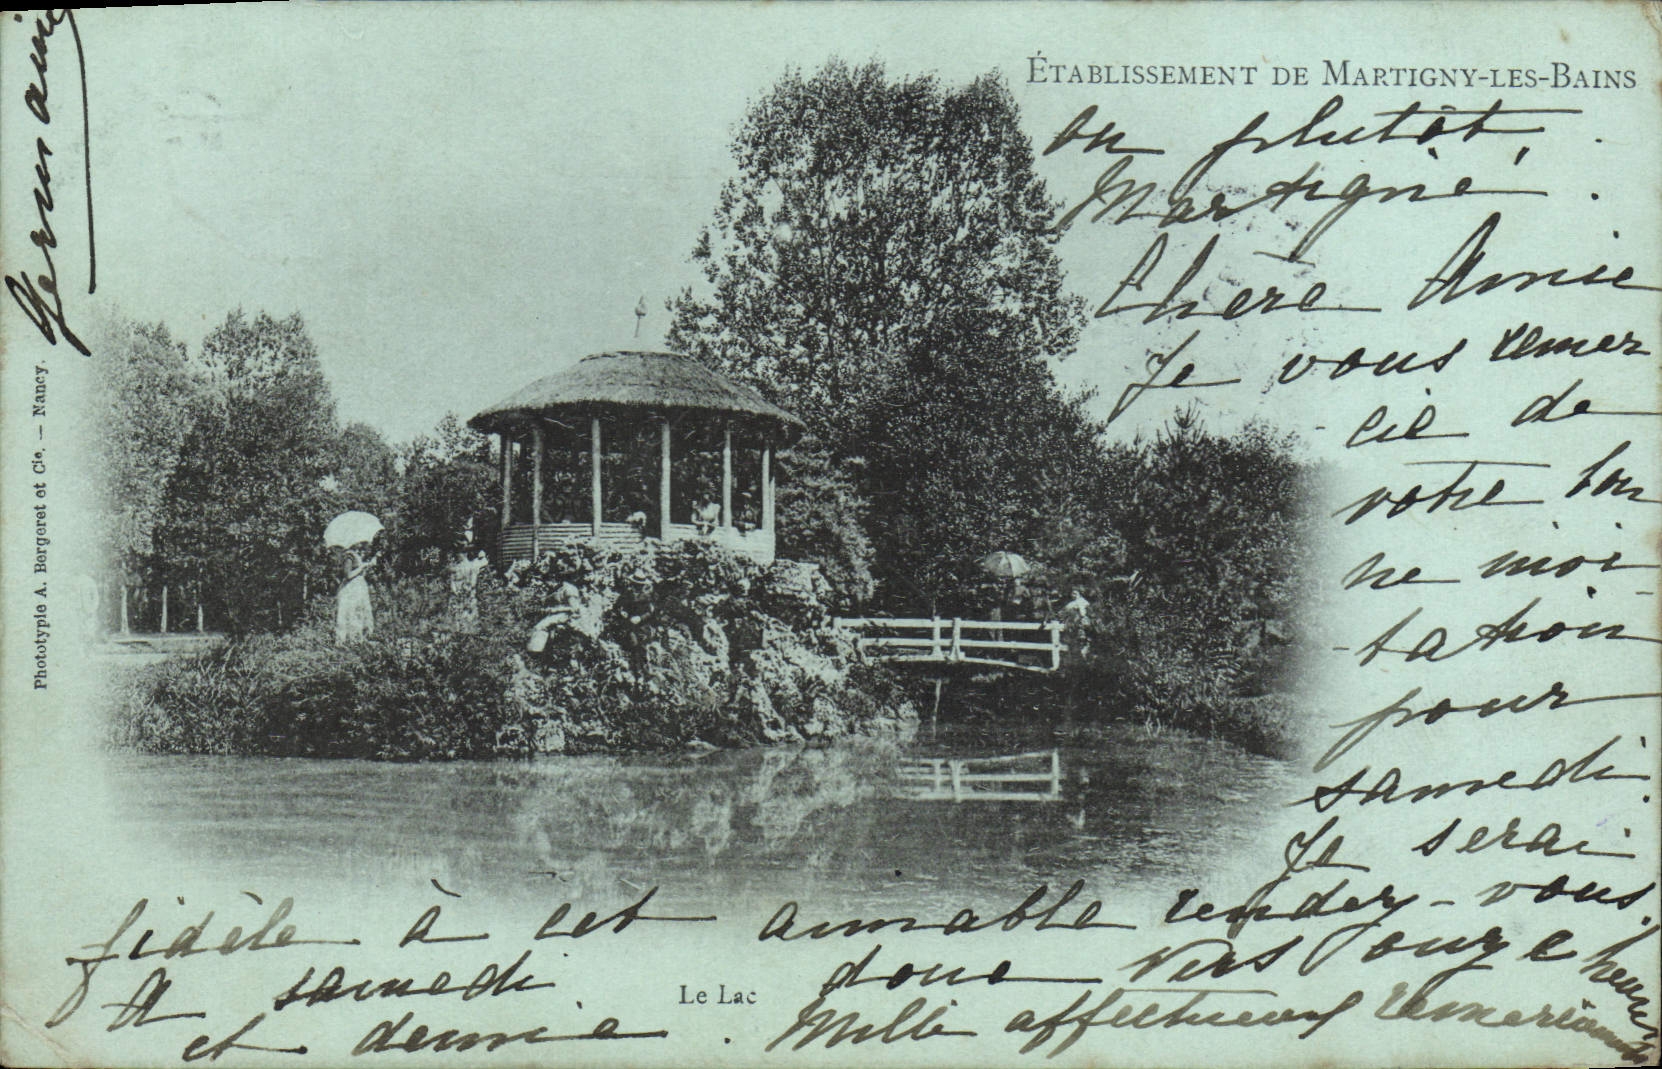 ÉTABLISSEMENT DE MARTIGNY-LES-BAINS
ou plutôt,
Martigné
Chère Amie
Je vous remer
cie de
votre bon
ne invi
tation
pour
samedi.
Je serai
fidèle à cet aimable rendez-vous.
A samedi donc vers onze heures
et demie. Mille affectueux remerciements
Germaine
Le Lac
Phototypie A. Bergeret et Cie. — Nancy.